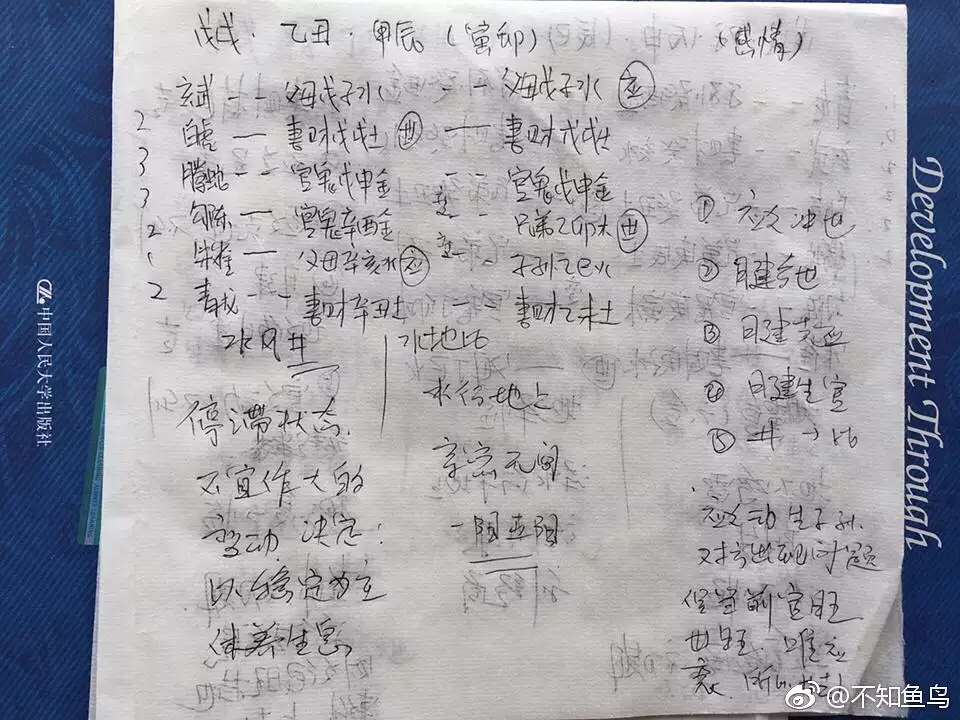 戊戌·乙丑·甲辰(寅卯) (感情)
玄武 -- 父母戊子水 -- 父母戊子水 应
2 白虎 — 妻财戊戌土 世 — 妻财戊戌土
3 腾蛇 -- 官鬼戊申金 -- 官鬼戊申金
3 勾陈 — 官鬼辛酉金 -- 兄弟乙卯木 世
2 朱雀 — 父母辛亥水 应 -- 子孙乙巳火
2 青龙 -- 妻财辛丑土 妻财乙未土
水风井 水地比
停滞状态
不宜作大的
变动 决定:
以稳定为主
休养生息
水行地上
亲密无间
一阳五阴
① 应爻冲世
② 日建合世
③ 日建克应
④ 日建生官
⑤ 井→比
应爻动生子孙.
对方出现问题
官旺
世旺. 唯应
衰.
中国人民大学出版社
Development Through
@不知鱼鸟